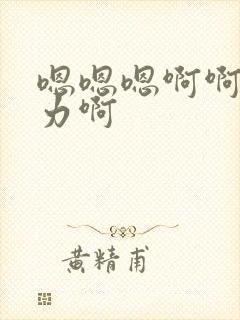 嗯嗯嗯啊啊
力啊
黄精甫